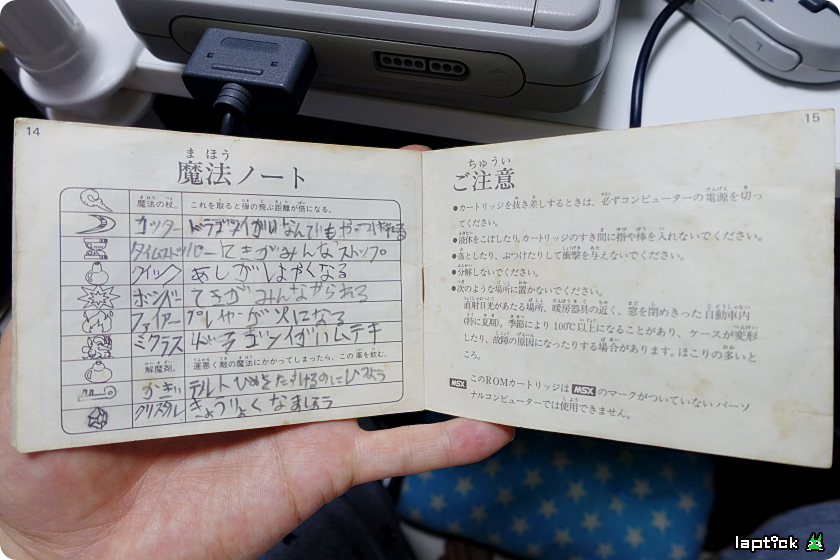 14
まほう
魔法ノート
魔法の杖。 これを取ると弾の飛ぶ距離が倍になる。
カッター ドラゴンイがい なんでもやっつけれる
タイムストッパー てきがみんなストップ
クイック あしがはやくなる
ボンバー てきがみんなちらおる
ファイアー プレヤーが火になる
ミクラス ドラゴンイがいムテキ
解魔剤。 運悪く敵の魔法にかかってしまったら、この薬を飲む。
かぎ デルト ひめをたすけるのにひつよう
クリスタル きょうりょくなましょう
15
ちゅうい
ご注意
●カートリッジを抜き差しするときは、必ずコンピューターの電源を切っ
てください。
●液体をこぼしたり、カートリッジのすき間に指や棒を入れないでください。
●落としたり、ぶつけたりして衝撃を与えないでください。
●分解しないでください。
●次のような場所に置かないでください。
直射日光があたる場所、暖房器具の近く、窓を閉めきった自動車内
(特に夏期。季節により100℃以上になることがあり、ケースが変形
したり、故障の原因になったりする場合があります。ほこりの多いと
ころ。
MSX このROMカートリッジは MSX のマークがついていないパーソ
ナルコンピューターでは使用できません。
laptick